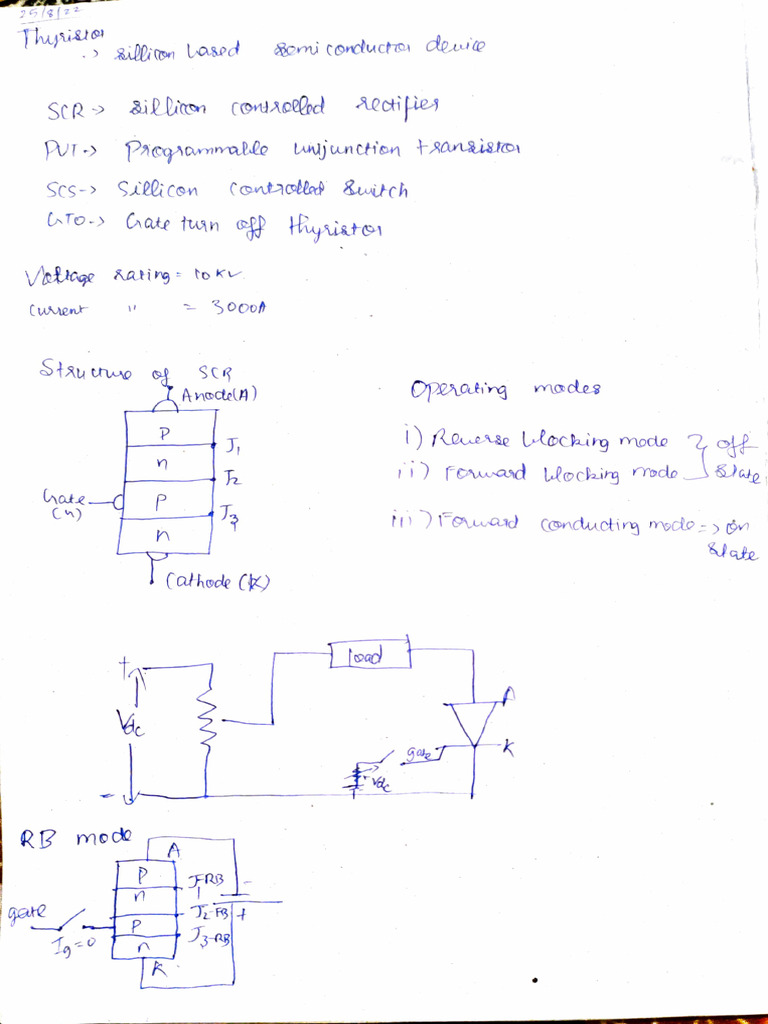 25/8/22
Thyristor
-> sillicon based semiconductor device
SCR -> sillicon controlled rectifier
PUT -> Programmable unijunction transistor
SCS -> Sillicon controlled switch
GTO -> Gate turn off thyristor
Voltage rating = 10 KV
Current " = 3000A
Structure of SCR
Anode (A)
P
J1
n
J2
Gate
(G)
P
J3
n
Cathode (K)
Operating modes
i) Reverse blocking mode } off
ii) Forward blocking mode } state
iii) Forward conducting mode => on
state
+
load
Vdc
A
K
gate
Vdc
-
RB mode
A
P
J1-RB
-
n
J2-FB
+
gate
P
J3-RB
Ig=0
n
K